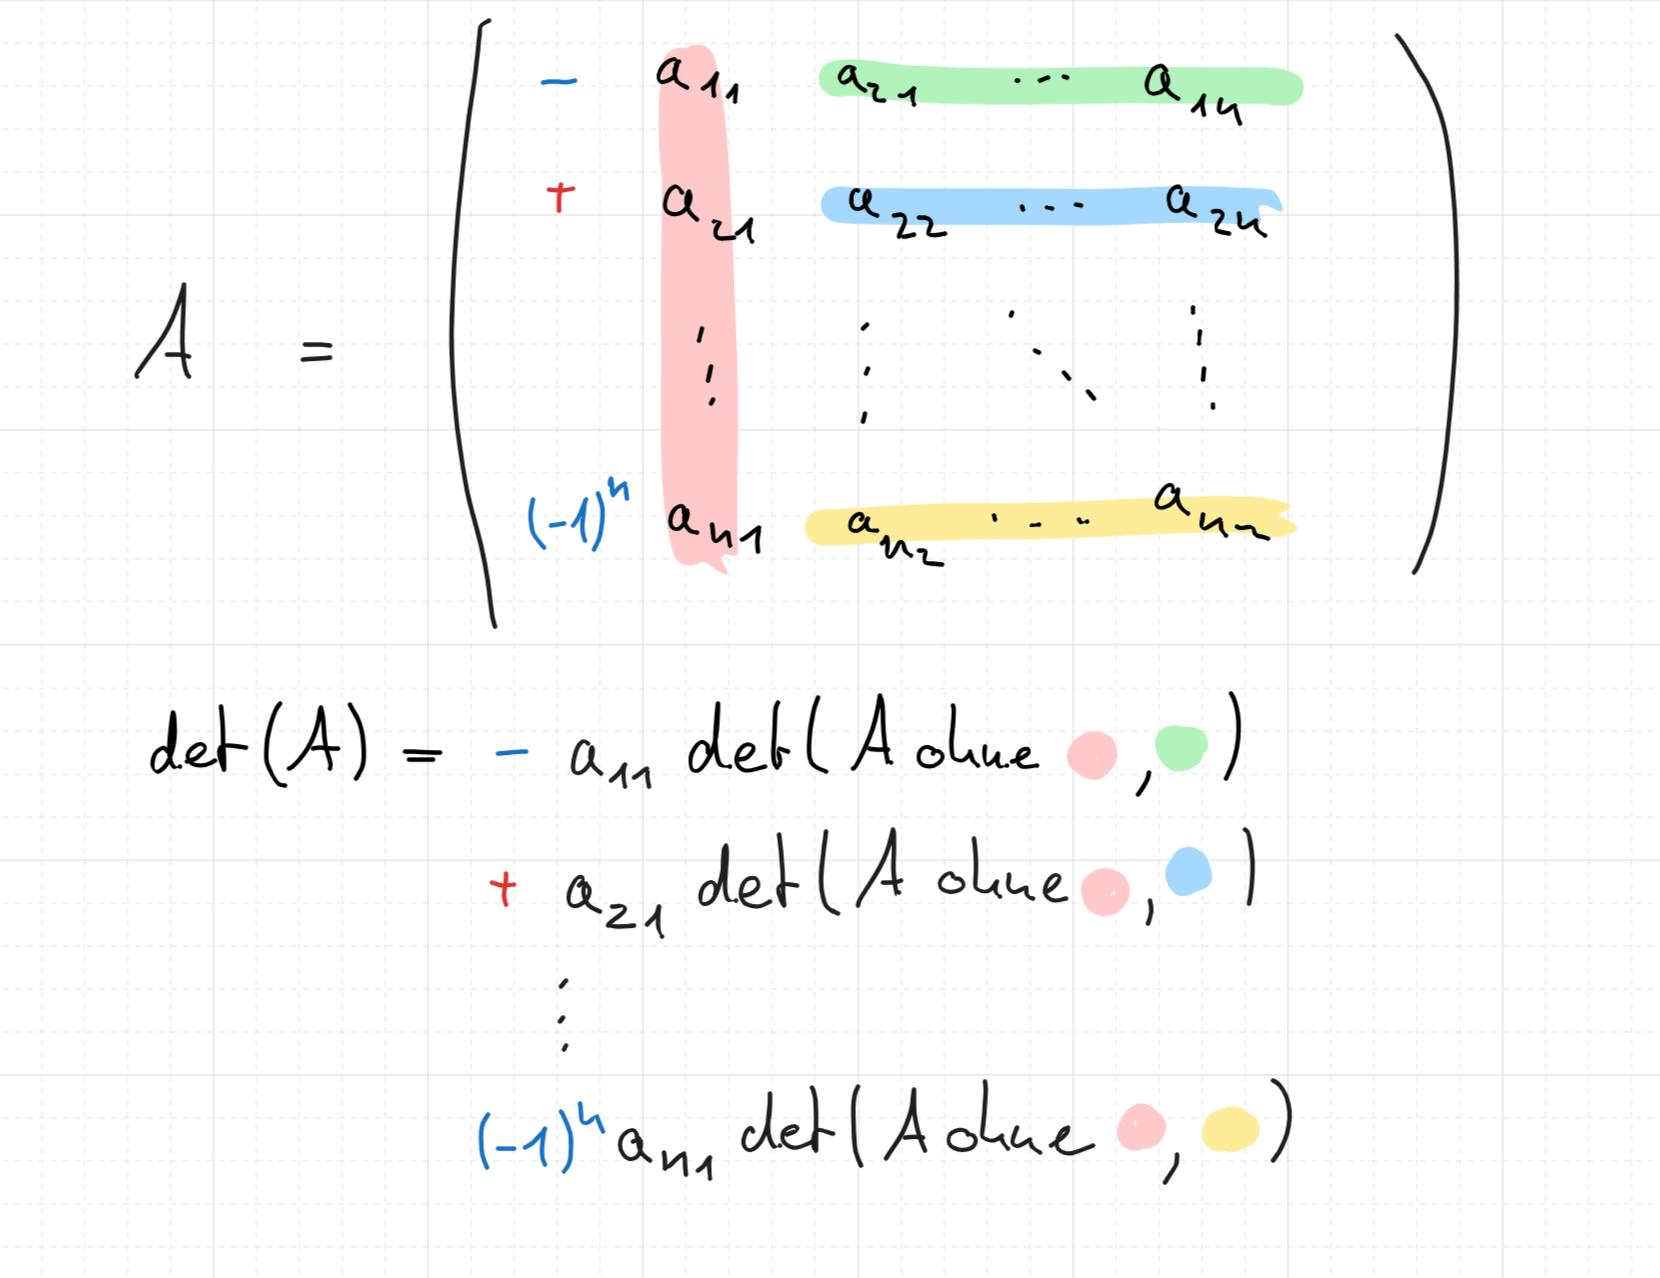 - a₁₁ a₂₁ ... a₁ₙ
+ a₂₁ a₂₂ ... a₂ₙ
A =
⋮ ⋮ ⋱ ⋮
(-1)ⁿ aₙ₁ aₙ₂ ... aₙₙ
det(A) = - a₁₁ det(A ohne , )
+ a₂₁ det(A ohne , )
⋮
(-1)ⁿ aₙ₁ det(A ohne , )